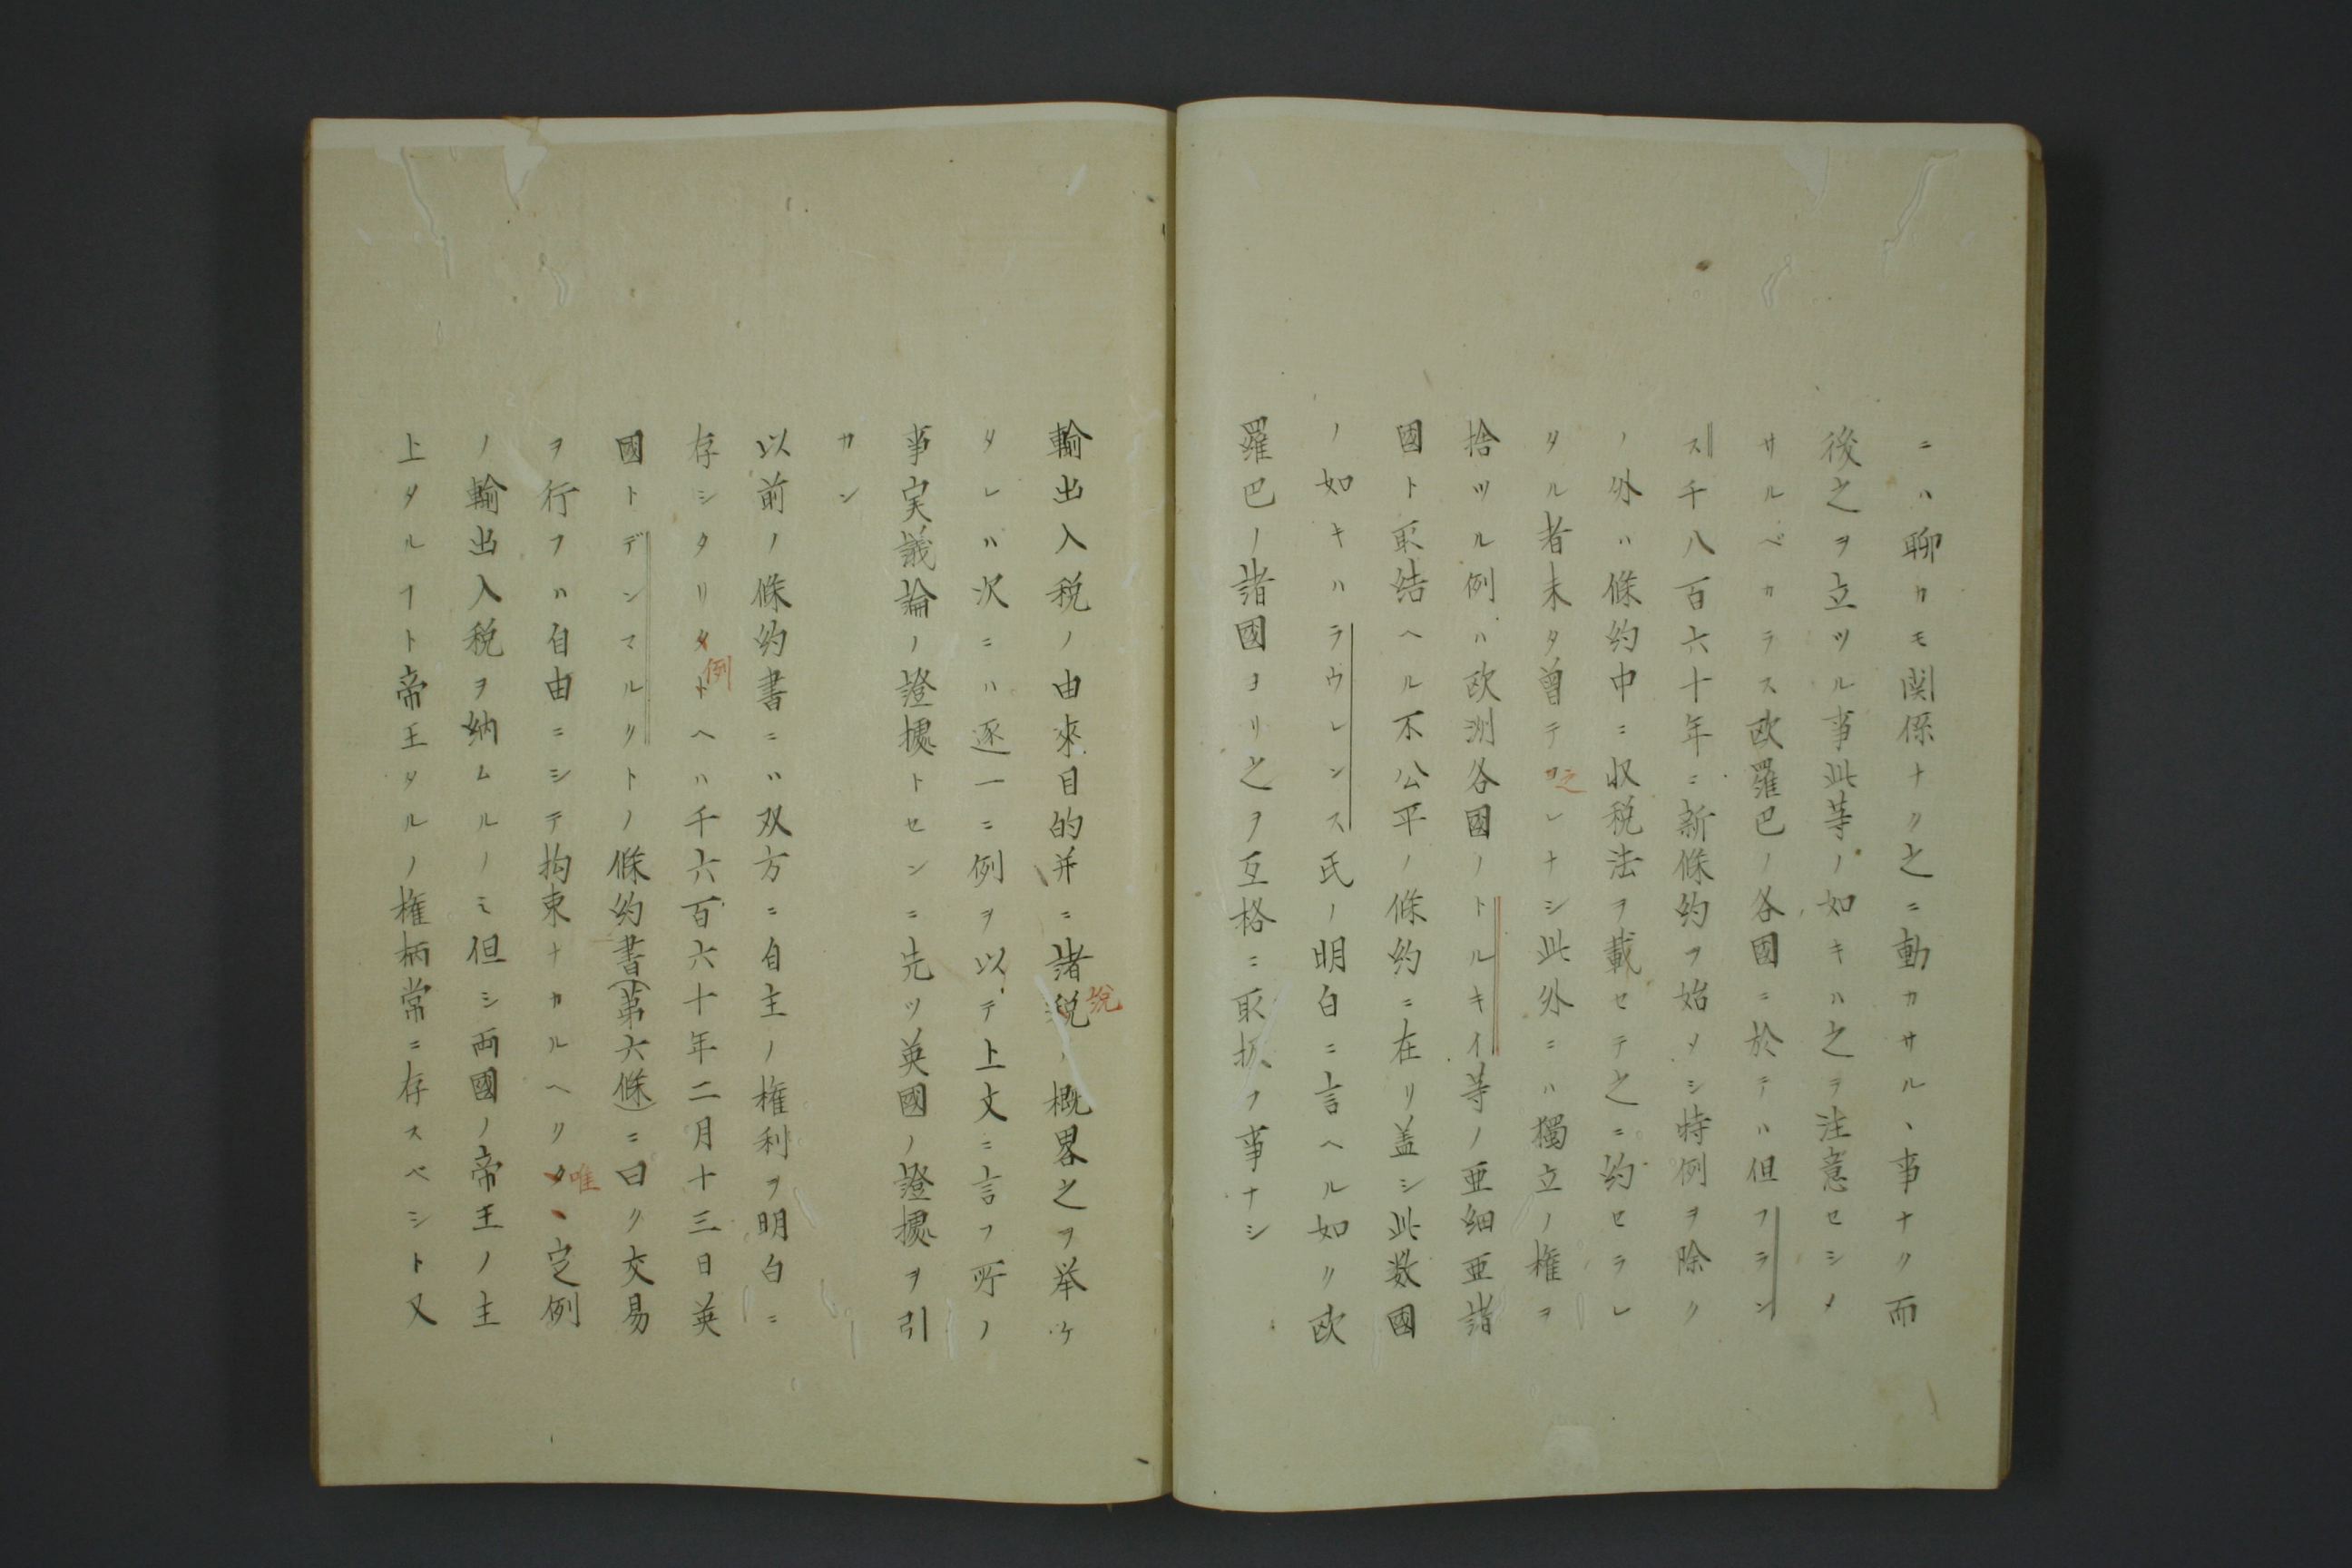 ニハ聊カモ関係ナク之ニ動カサルヽ事ナク而
後之ヲ立ツル事此等ノ如キハ之ヲ注意セシメ
サルベカラス欧羅巴ノ各國ニ於テハ但フラン
ス千八百六十年ニ新條約ヲ始メシ特例ヲ除ク
ノ外ハ條約中ニ収税法ヲ載セテ之ニ約セラレ
タル者未タ曾テ之レナシ此外ニハ獨立ノ権ヲ
捨ツル例ハ欧洲各國ノトルキイ等ノ亜細亜諸
國ト取結ヘル不公平ノ條約ニ在リ蓋シ此数國
ノ如キハラウレンス氏ノ明白ニ言ヘル如ク欧
羅巴ノ諸國ヨリ之ヲ互格ニ取扱フ事ナシ
輸出入税ノ由來目的并ニ諸税説ノ概畧之ヲ挙ケ
タレハ次ニハ逐一ニ例ヲ以テ上文ニ言フ所ノ
事実議論ノ證據トセンニ先ツ英國ノ證據ヲ引
カン
以前ノ條約書ニハ双方ニ自主ノ権利ヲ明白ニ
存シタリタ例トヘハ千六百六十年二月十三日英
國トデンマルクトノ條約書(第六條)ニ曰ク交易
ヲ行フハ自由ニシテ拘束ナカルヘクタ唯ヽ定例
ノ輸出入税ヲ納ムルノミ但シ両國ノ帝王ノ主
上タルヿト帝王タルノ権柄常ニ存スベシト又